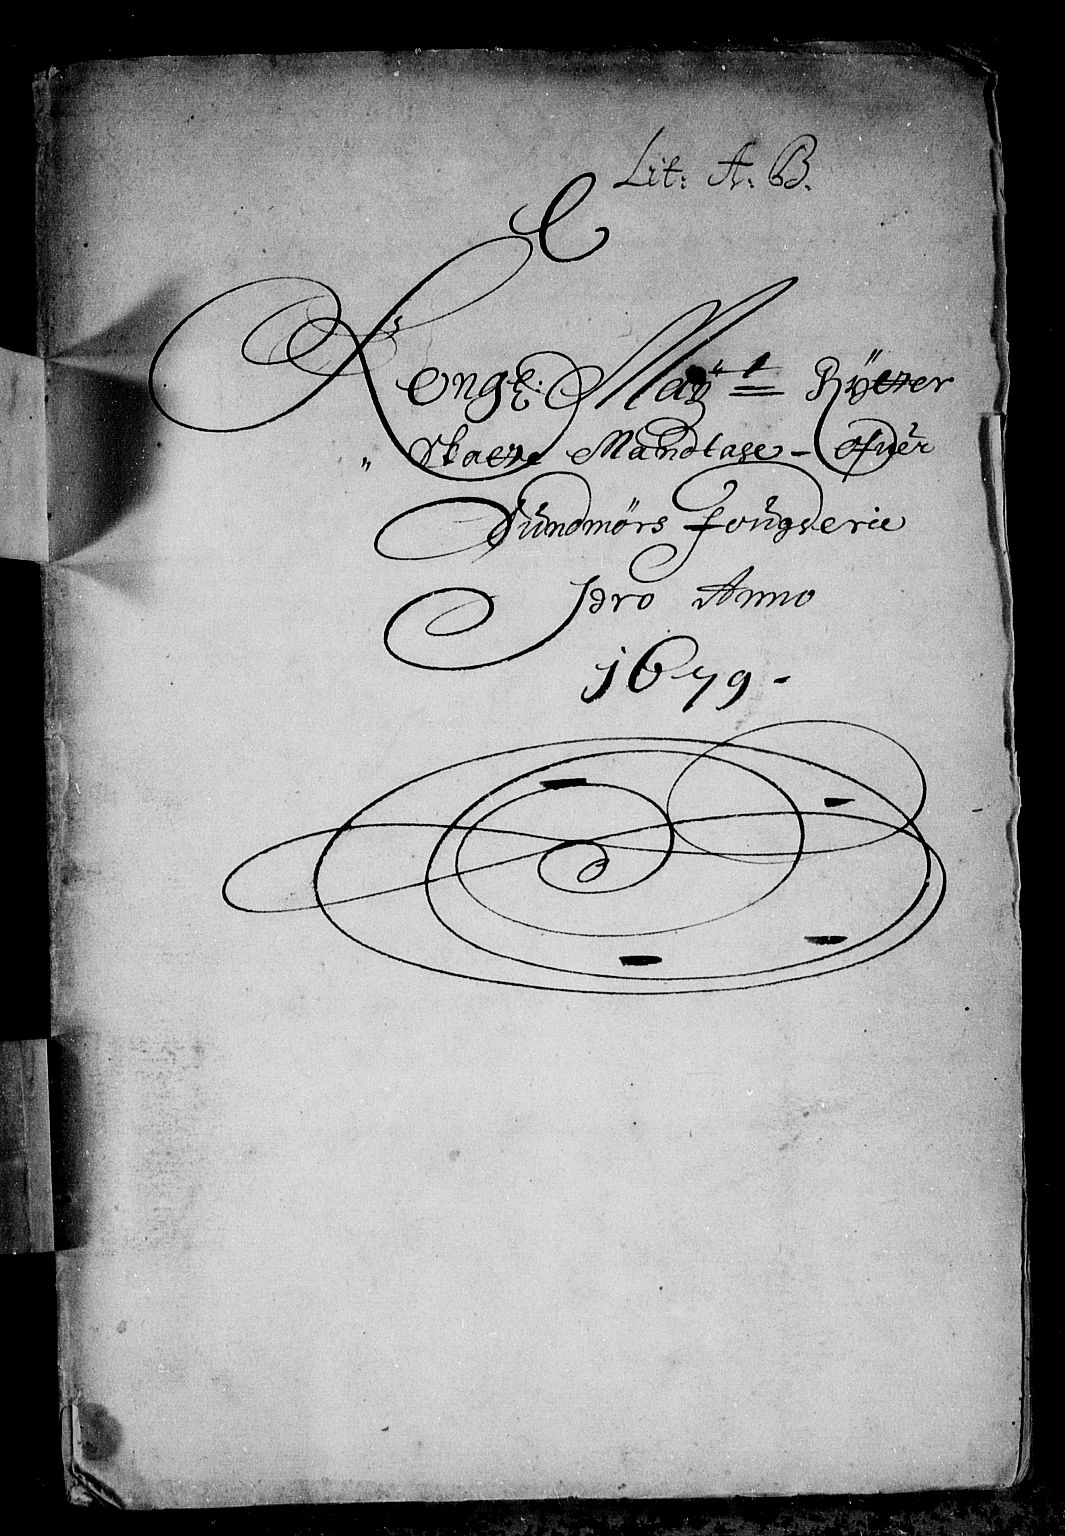 Lit: A: B.
C
Kongl: May:tt Rÿtter
Skatte Mandtall - ofuer
Sündmörs fougderie
pro Anno
1679 -